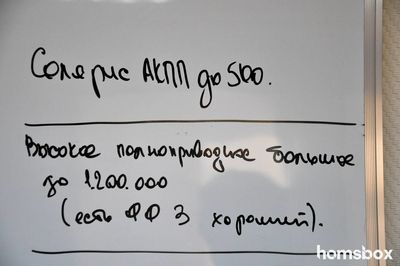 Солярис АКПП до 500.
Высокое полноприводное большое
до 1.200.000
(есть ФФ 3 хороший).
homsbox